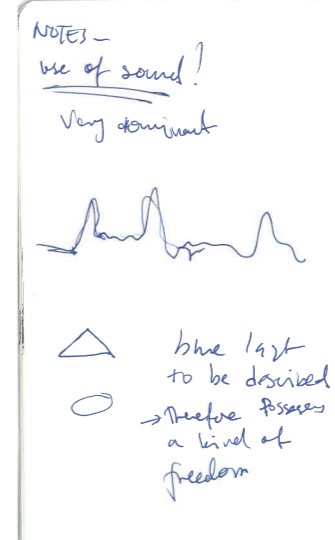 NOTES –
use of sound!
Very dominant
blue last
to be described
→ Therefore possesses
a kind of
freedom